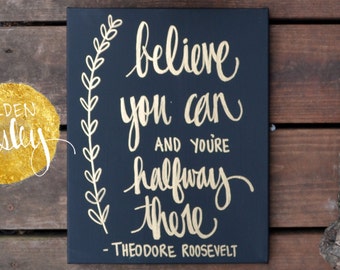 believe
you can
AND YOU'RE
halfway
there
- THEODORE ROOSEVELT